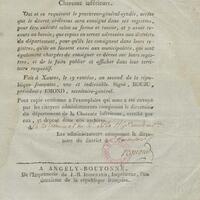 Charente inférieure.
Ouï et ce requérant le procureur-général-syndic, arrête
que le décret ci-dessus sera consigné dans ses registres,
pour être exécuté selon sa forme et teneur, et y avoir recours
au besoin; que copies en seront adressées aux districts
du département, pour qu'ils les consignent dans leurs registres,
qu'ils en envoient aux municipalités, qui sont
également chargées de consigner ce décret sur leurs registres,
et de le faire publier et afficher dans leur territoire
respectif.
Fait à Xantes, le 19 ventôse, an second de la république
française, une et indivisible. Signé,
président; EMOND, secrétaire-général.
Pour copie conforme à l'exemplaire qui nous a été envoyé
par les citoyens administrateurs composant le directoire
du département de la Charente inférieure, certifié par
nous, et déposé dans nos archives.
Les administrateurs composant le directoire
du district
A ANGELY-BOUTONNE,
De l'Imprimerie de J.-B. Imprimeur, l'an
deuxième de la république française.